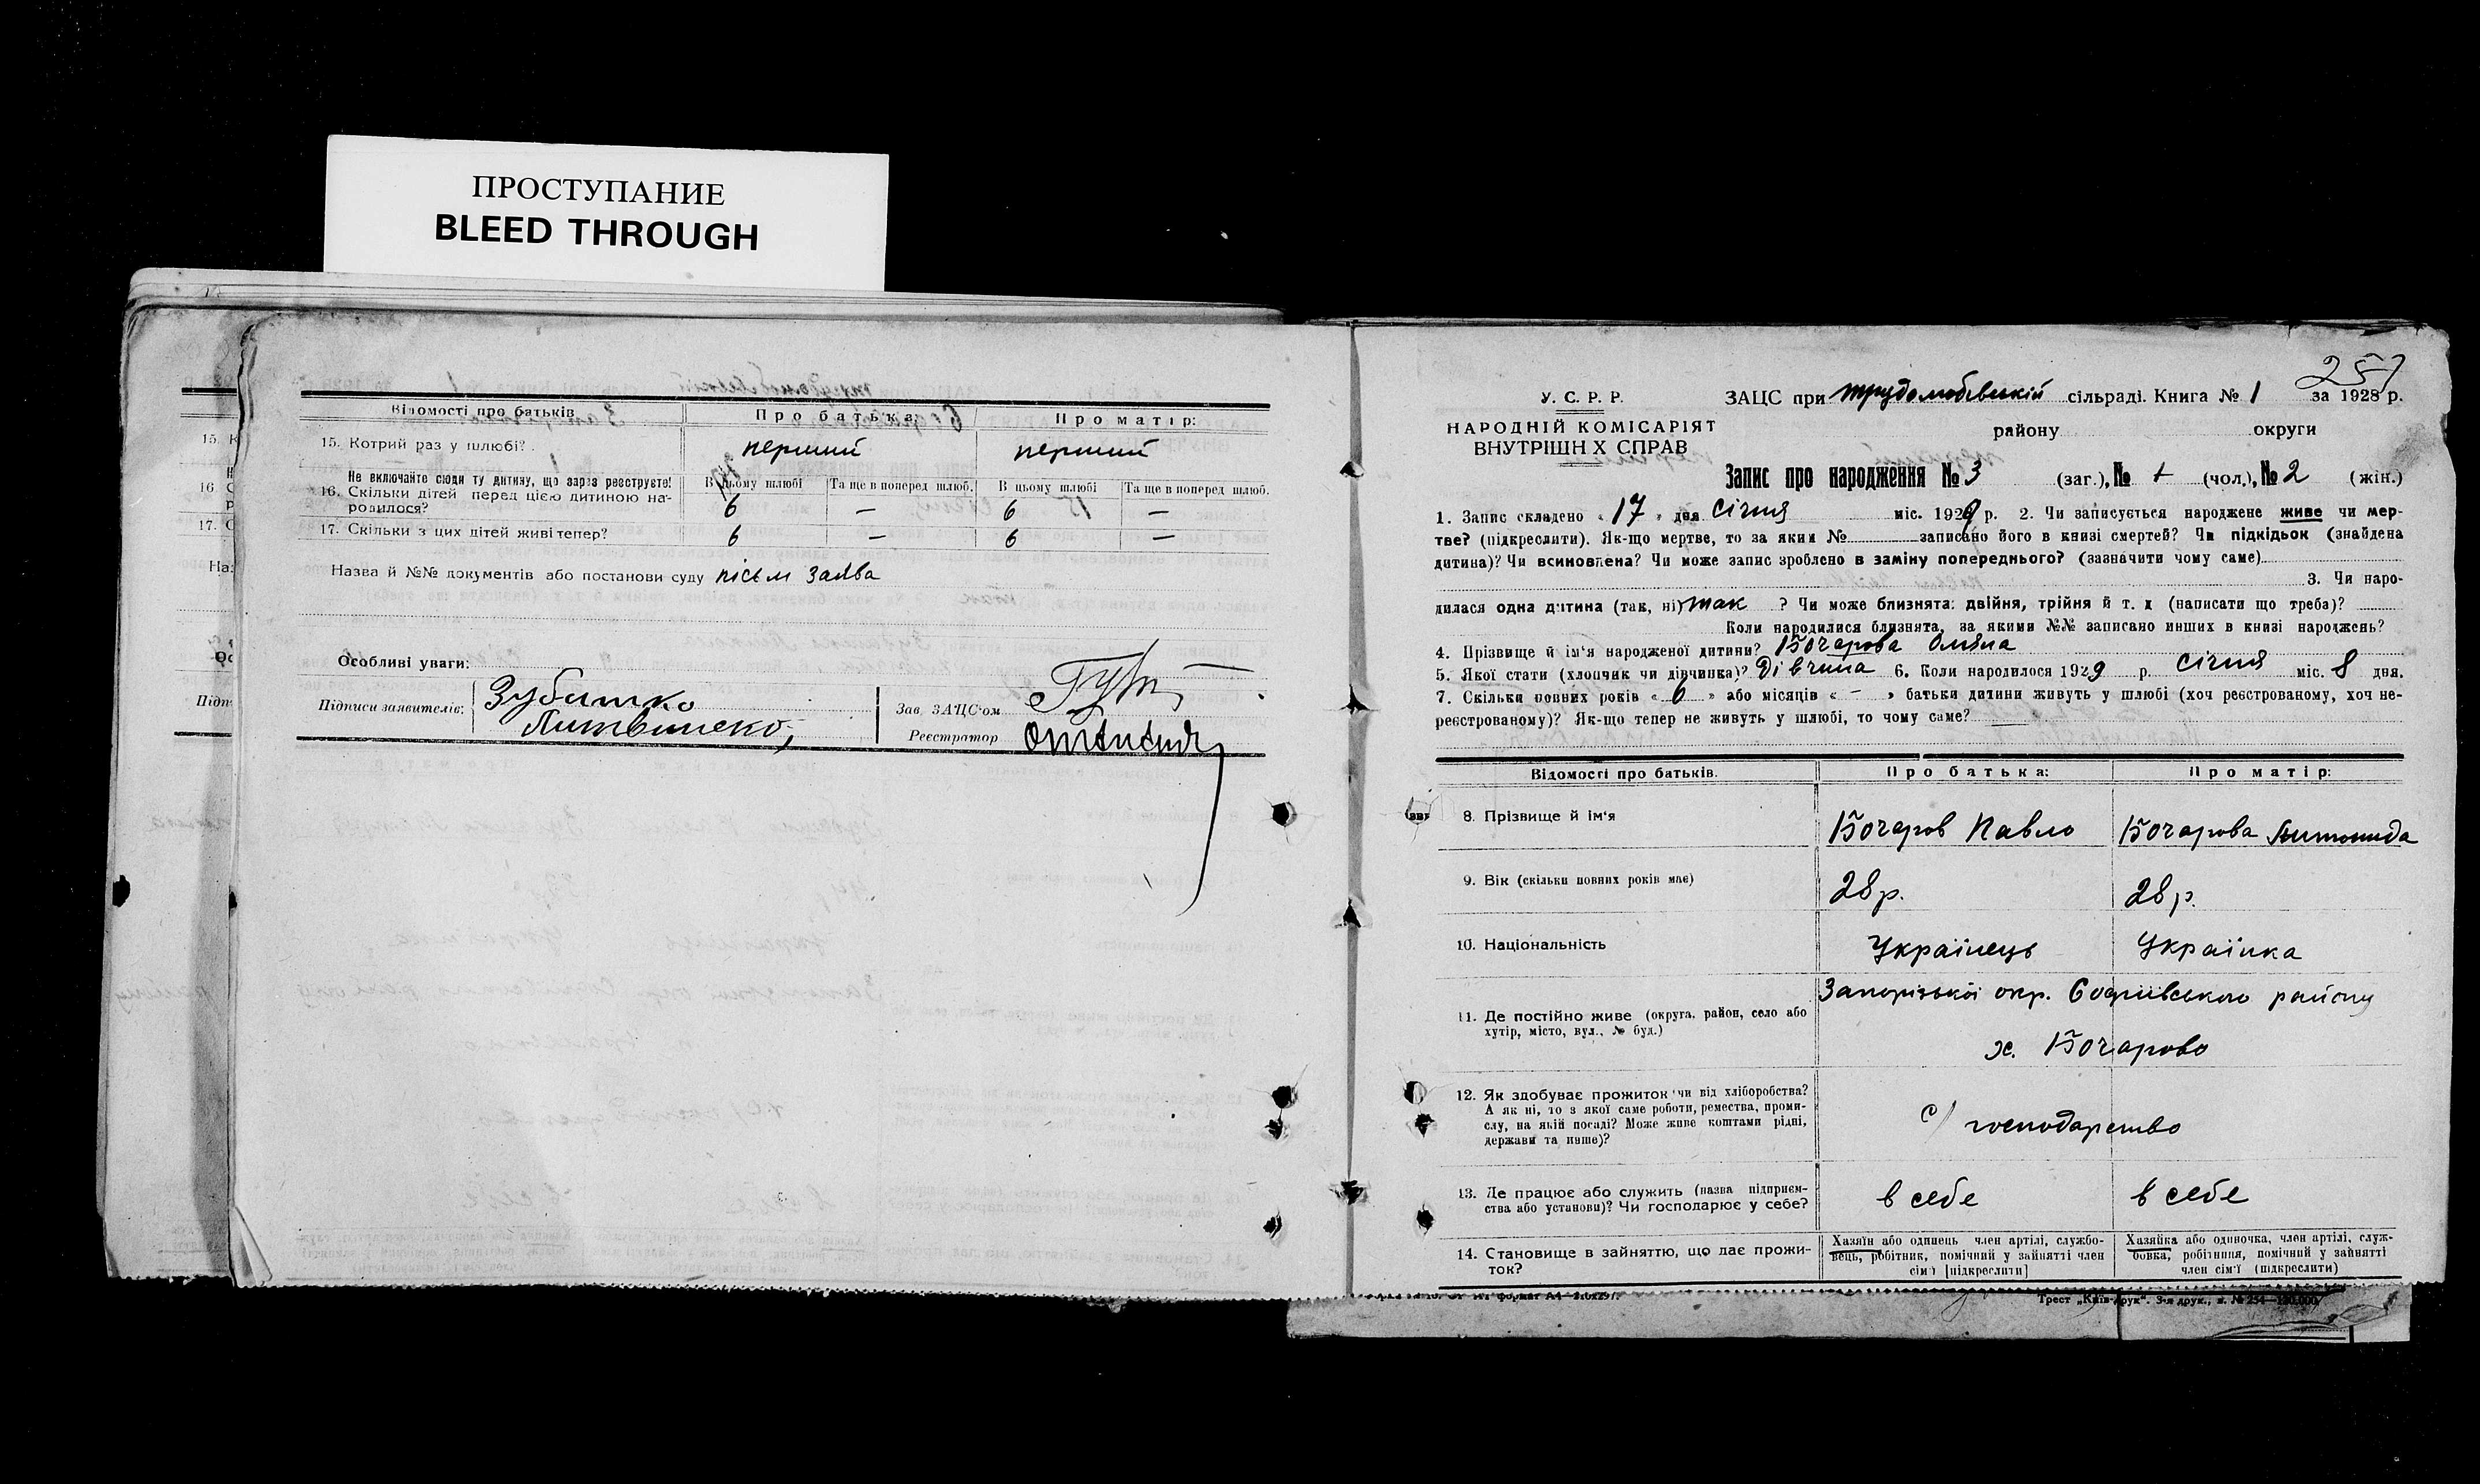 ПРОСТУПАНИЕ
BLEED THROUGH
Відомості про батьків
Про батька:
Про матір:
15. Котрий раз у шлюбі?
перший
перший
Не включайте сюди ту дитину, що зараз реєструєте!
В цьому шлюбі
Та ще в поперед шлюб.
В цьому шлюбі
Та ще в поперед шлюб.
16. Скільки дітей перед цією дитиною на-
родилося?
6 — 6 —
17. Скільки з цих дітей живі тепер?
6 — 6 —
Назва й №№ документів або постанови суду письм заява
Особливі уваги:
Підписи заявителів:
Зубашко
Литвиненко
Зав. ЗАЦС'ом
Реєстратор
257
У. С. Р. Р.
НАРОДНІЙ КОМІСАРІЯТ
ВНУТРІШН Х СПРАВ
ЗАЦС при трудолюбівській сільраді. Книга № 1 за 1928 р.
району округи
Запис про народження № 3 (заг.), № + (чол.), № 2 (жін.)
1. Запис складено « 17 » дня січня міс. 1929 р. 2. Чи записується народжене живе чи мер-
тве? (підкреслити). Як-що мертве, то за яким № записано його в книзі смертей? Чи підкідьок (знайдена
дитина)? Чи всиновлена? Чи може запис зроблено в заміну попереднього? (зазначити чому саме)
3. Чи наро-
дилася одна дитина (так, ні) так ? Чи може близнята: двійня, трійня й т. д (написати що треба)?
Коли народилися близнята, за якими №№ записано инших в книзі народжень?
4. Прізвище й ім'я народженої дитини? Бочарова Оляна
5. Якої стати (хлопчик чи дівчинка)? Дівчина 6. Коли народилося 1929 р. січня міс. 8 дня.
7. Скільки повних років « 6 » або місяців « - » батьки дитини живуть у шлюбі (хоч реєстрованому, хоч не-
реєстрованому)? Як-що тепер не живуть у шлюбі, то чому саме?
Відомості про батьків.
Про батька:
Про матір:
8. Прізвище й ім'я
Бочаров Павло
Бочарова Антонида
9. Вік (скільки повних років має)
28 р.
28 р.
10. Національність
Українець
Українка
11. Де постійно живе (округа, район, село або
хутір, місто, вул., № буд.)
Запорізької окр. Софіївського району
х. Бочарово
12. Як здобуває прожиток чи від хліборобства?
А як ні, то з якої саме роботи, ремества, проми-
слу, на якій посаді? Може живе коштами рідні,
держави та инше)?
с/ господарство
13. Де працює або служить (назва підприєм-
ства або установи)? Чи господарює у себе?
в себе
в себе
14. Становище в зайняттю, що дає прожи-
ток?
Хазяїн або одинець член артілі, службо-
вець, робітник, помічний у зайнятті член
сім'ї [підкреслити]
Хазяйка або одиночка, член артілі, служ-
бовка, робітниця, помічний у зайнятті
член сім'ї (підкреслити)
Трест „Київ-Друк". 3-я друк., з. № 254—130.000